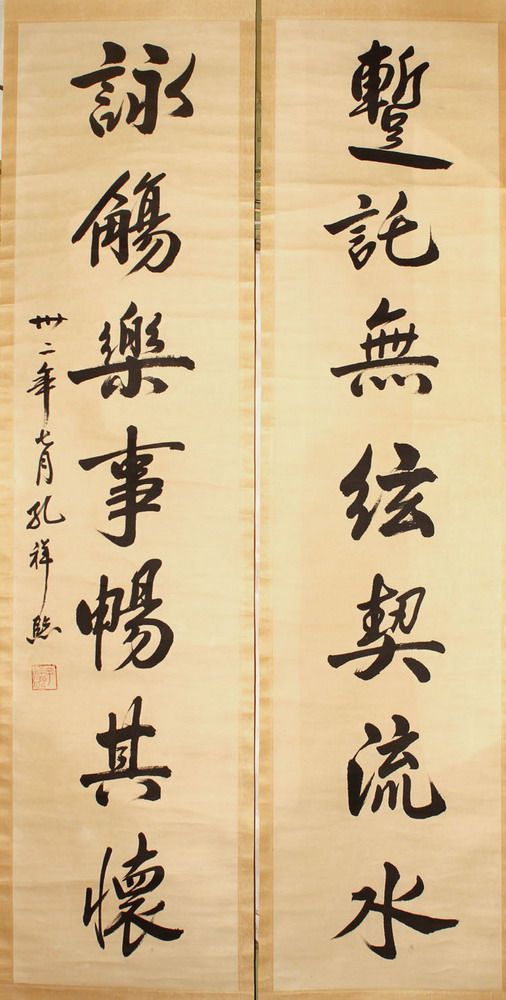 蹔託無絃契流水
詠觴樂事暢其懷
卅二年七月孔祥臨